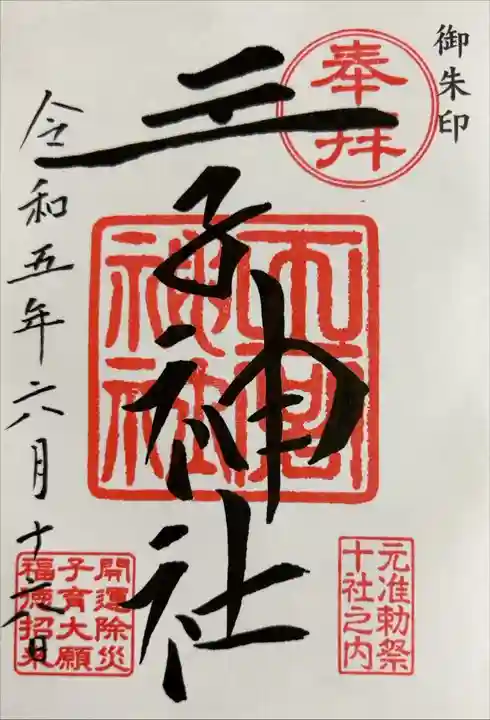 御朱印
奉拝
王子神社
神社
元准勅祭
十社之内
開運除災
子育大願
福徳招来
令和五年六月十六日